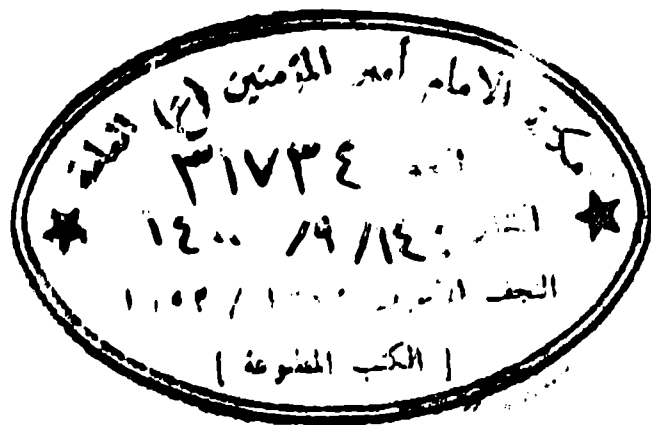 مكتبة الامام أمير المؤمنين (ع) العامة
العدد ٣١٧٣٤
التاريخ ١٤ / ٩ / ١٤٠٠
النجف الأشرف
[ الكتب المطبوعة ]